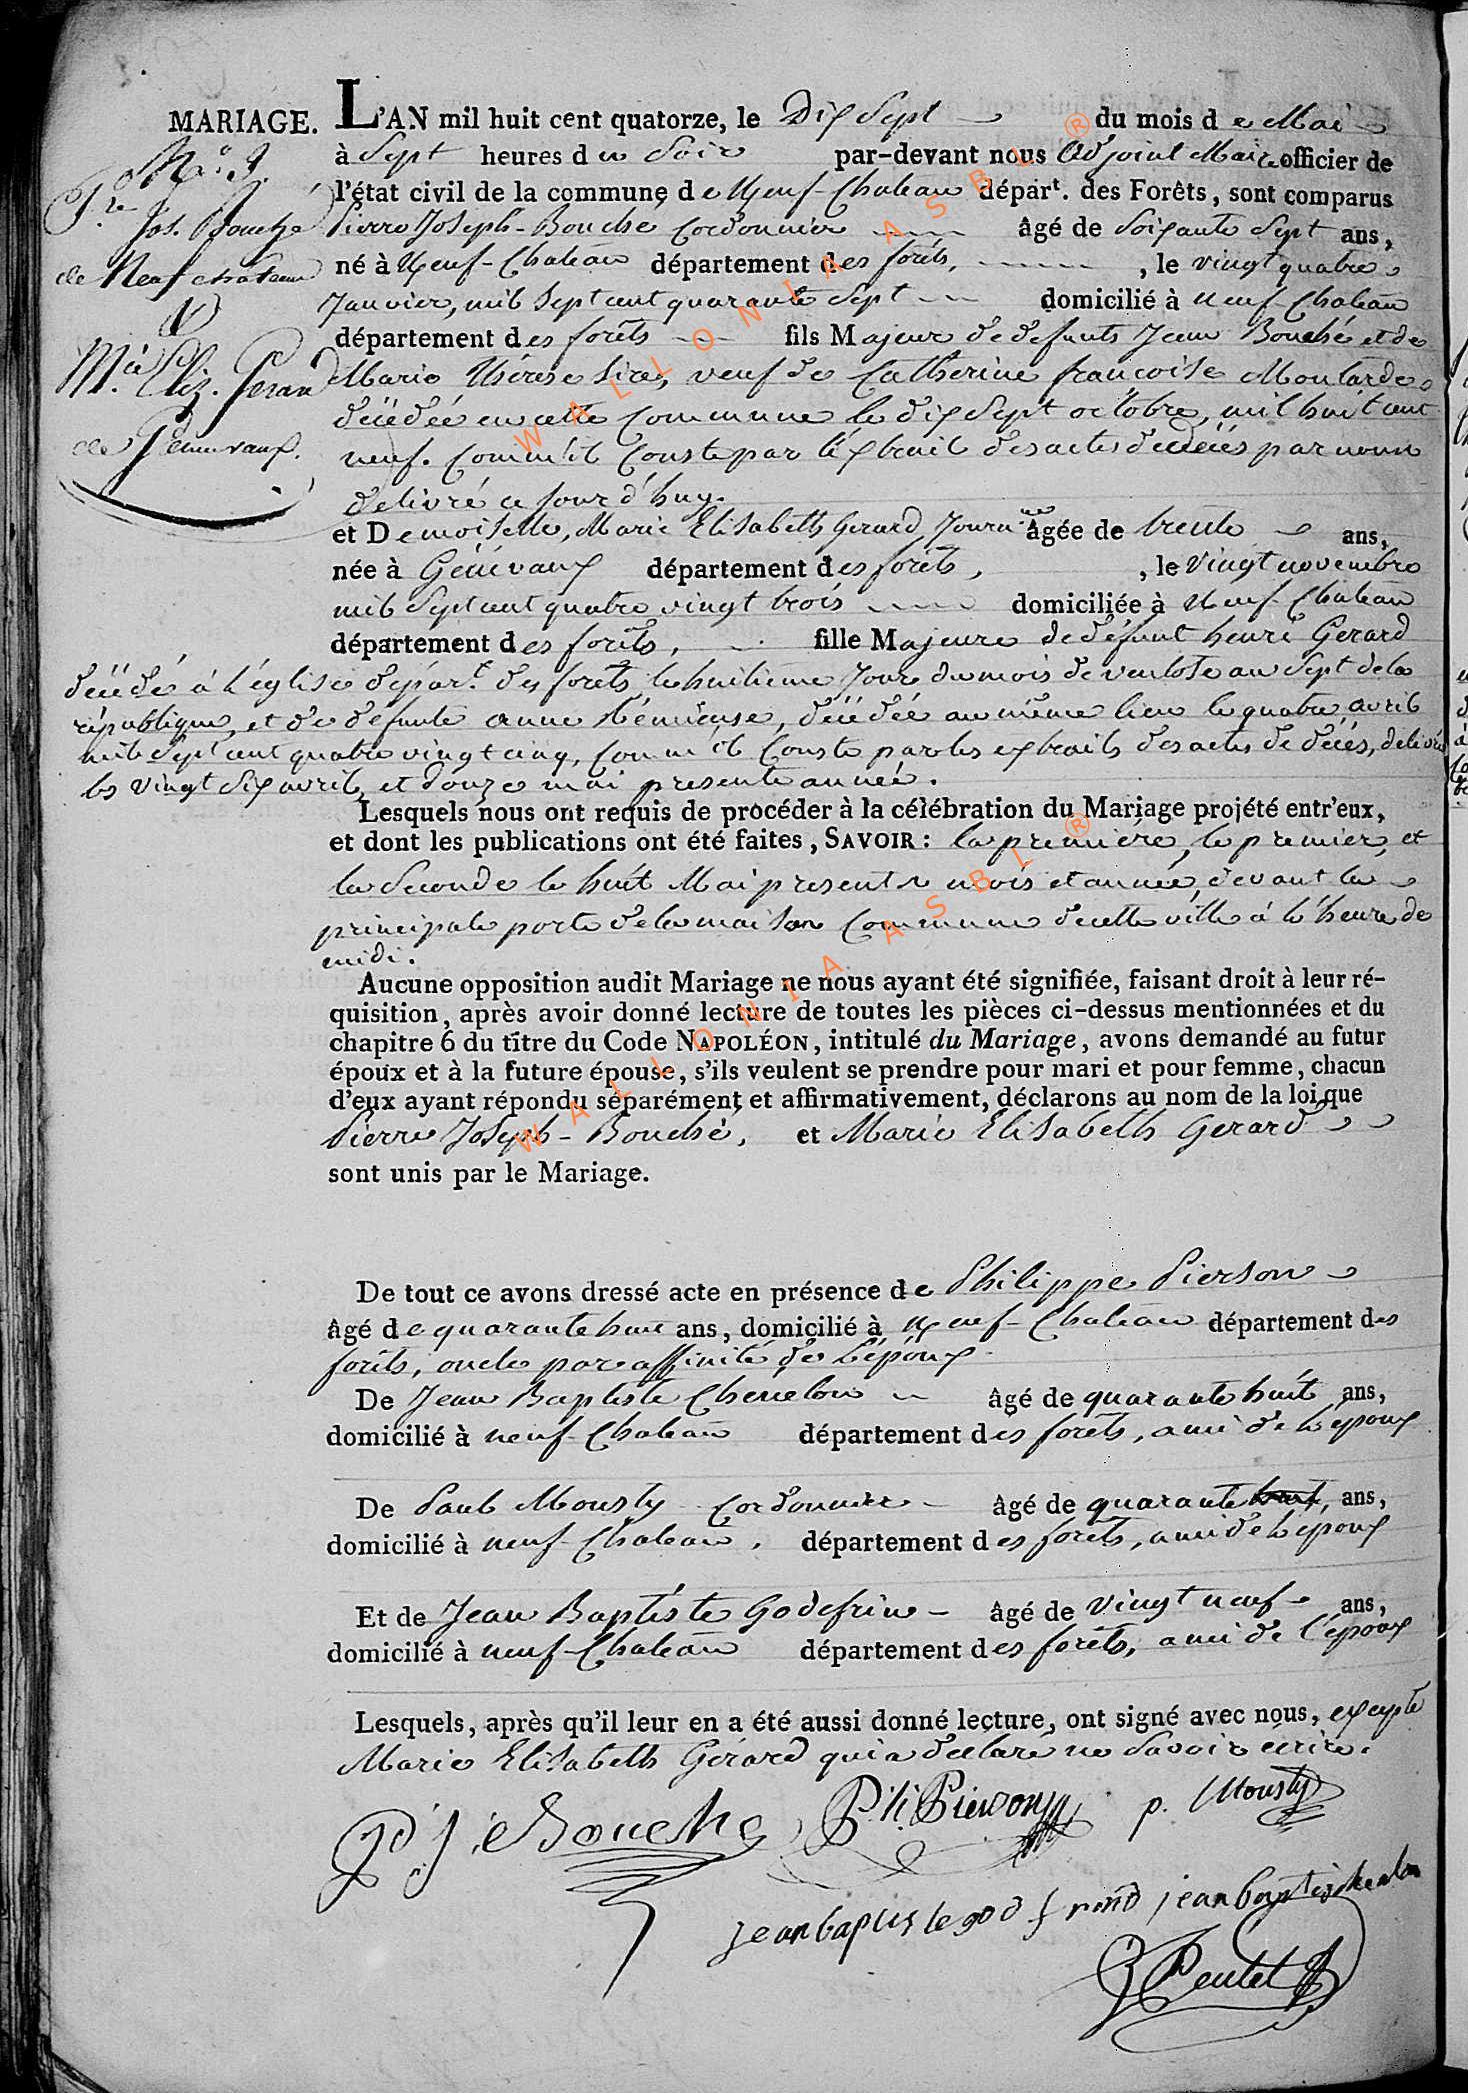 MARIAGE.
L'AN mil huit cent quatorze, le Dix Sept du mois de Mai
à Sept heures du Soir par-devant nous Adjoint Maire officier de
l'état civil de la commune de Neuf-Chateau départ. des Forêts, sont comparus
Pierre Joseph-Bouché Cordonnier âgé de Soixante Sept ans,
né à Neuf-Chateau département des forêts, , le vingt quatre
Janvier, mil Sept cent quarante Sept domicilié à neuf-Chateau
département des forêts fils Majeur de defunts Jean Bouché et de
Marie Thérese Sire, veuf de Catherine françoise Moutarde
décédée en cette Commune le dix Sept octobre, mil huit cent
neuf. Comme il Conste par l'extrait des actes de décès par nous
delivré ce Jour d'huy.
et Demoiselle, Marie Elisabeth Gerard, Journ.ere âgée de trente ans,
née à Génévaux département des forêts, , le Vingt novembre
mil Sept cent quatre vingt trois domiciliée à Neuf-Chateau
département des forêts, fille Majeure de défunt henri Gerard
décédé à l'église départ.t des forêts le huitieme Jour du mois de ventose an Sept de la
république, et de défunte anne décédée au même lieu le quatre avril
mil Sept cent quatre vingt cinq, Comme il Conste par les extraits des actes de décès, délivrés
les Vingt Six avril, et douze mai presente année.
Lesquels nous ont requis de procéder à la célébration du Mariage projété entr'eux,
et dont les publications ont été faites, SAVOIR : la première, le premier, et
la Seconde le huit Mai present mois et année, devant la
principale porte de la maison Commune de cette ville à l'heure de
midi.
Aucune opposition audit Mariage ne nous ayant été signifiée, faisant droit à leur ré-
quisition, après avoir donné lecture de toutes les pièces ci-dessus mentionnées et du
chapitre 6 du titre du Code NAPOLÉON, intitulé du Mariage, avons demandé au futur
époux et à la future épouse, s'ils veulent se prendre pour mari et pour femme, chacun
d'eux ayant répondu séparément et affirmativement, déclarons au nom de la loi que
Pierre Joseph-Bouché, et Marie Elisabeth Gerard
sont unis par le Mariage.
De tout ce avons dressé acte en présence de Philippe Pierson
âgé de quarante huit ans, domicilié à Neuf-Chateau département des
forêts, oncle par affinité de l'époux
De Jean Baptiste Chenelon âgé de quarante huit ans,
domicilié à neuf-Chateau département des forêts, ami de l'époux
De Paul Mousty Cordonnier âgé de quarante ans,
domicilié à neuf-Chateau, département des forêts, ami de l'époux
Et de Jean Baptiste Godefrin âgé de Vingt neuf ans,
domicilié à neuf-Chateau département des forêts, ami de l'époux
Lesquels, après qu'il leur en a été aussi donné lecture, ont signé avec nous, excepté
Marie Elisabeth Gérard qui a déclaré ne Savoir écrire.
p j Bouché Ph Pierson p. Mousty
N.o 9.
P.re
Jos. Bouché
de Neufchateau
&
M.ie Eliz. Gerard
de
WALLONIA ASBL ®
WALLONIA ASBL ®